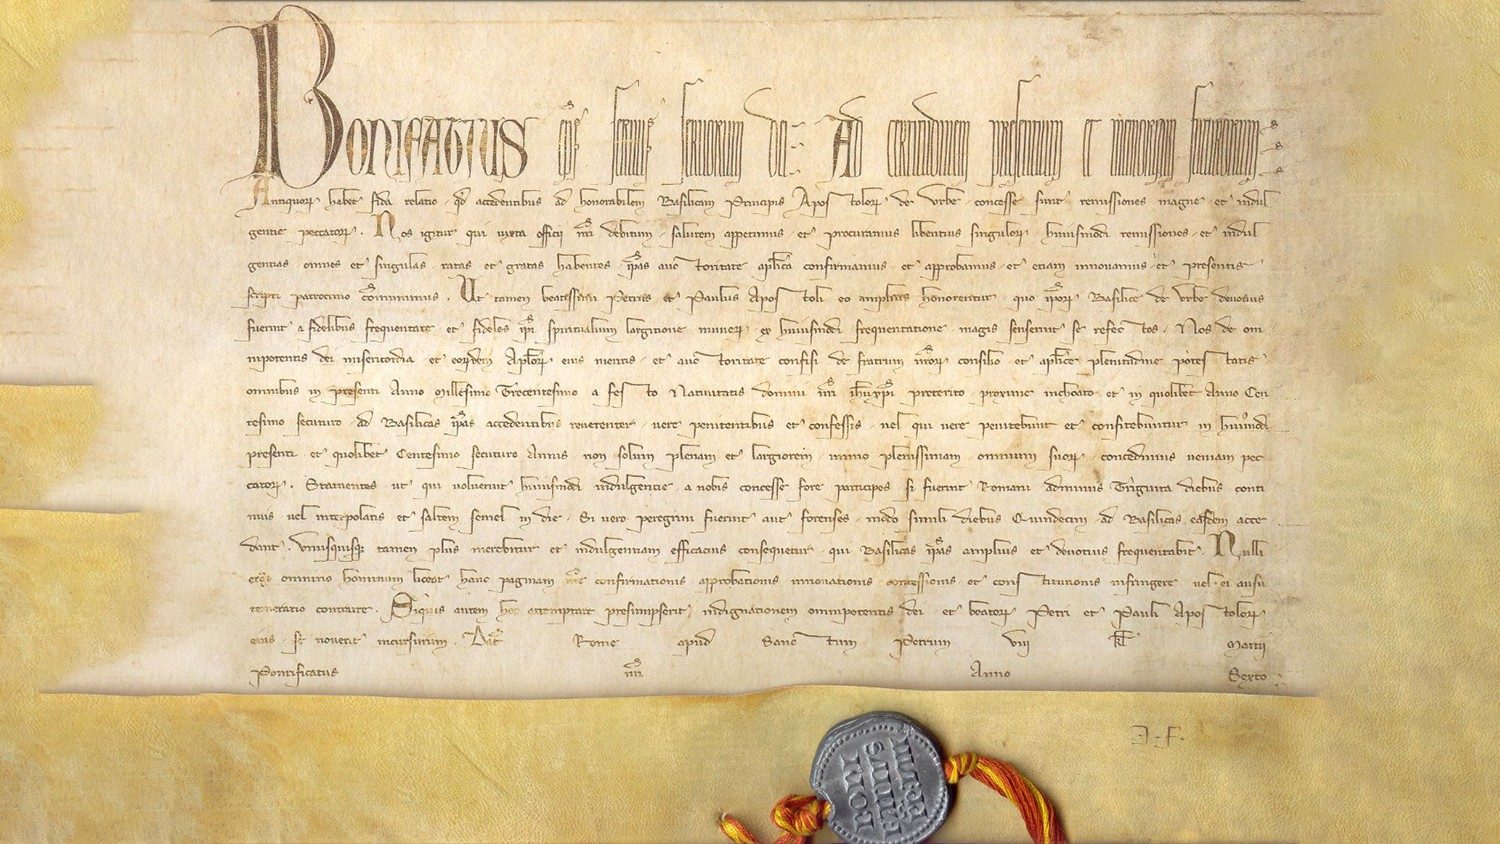 BONIFATIUS eps servus servorum dei. Ad certitudinem presentium et memoriam futurorum.
Antiquor habet fida relatio qd accedentibus ad honorabilem Basilicam Principis Apostolor de Urbe concesse sunt remissiones magne et indul
gentie peccator. Nos igitur qui iuxta officij nri debitum salutem appetimus et procuramus libentius singulor huiusmodi remissiones et indul
gentias omnes et singulas ratas et gratas habentes ipas auctoritate aplica confirmamus et approbamus et etiam innovamus et presentis
scripti patrocinio comunimus. Ut tamen beatissimi Petrus et Paulus Apostoli eo amplius honorentur quo ipor Basilice de Urbe devotius
fuerint a fidelibus frequentate et fideles ipi spiritualium largitione muner ex huiusmodi frequentatione magis senserint se refectos. Nos de om
nipotentis dei misericordia et eordem Aplor eius meritis et auctoritate confisi de fratrum nror consilio et aplice plenitudine potestatis
omnibus in presenti Anno Millesimo Trecentesimo a festo Nativitatis domini nri ihu xpi preterito proxime inchoato et in quolibet Anno Cen
tesimo secuturo ad Basilicas ipas accedentibus reverenter vere penitentibus et confessis vel qui vere penitebunt et confitebuntur in huiusmodi
presenti et quolibet Centesimo secuturo Annis non solum plenam et largiorem immo plenissimam omnium suor concedimus veniam pec
cator. Statuentes ut qui voluerint huiusmodi indulgentie a nobis concesse fore participes si fuerint Romani adminus Triginta diebus conti
nuis vel interpolatis et saltem semel in die. Si vero peregrini fuerint aut forenses modo simili diebus Quindecim ad Basilicas easdem acce
dant. Unusquisq tamen plus merebitur et indulgentiam efficacius consequetur qui Basilicas ipas amplius et devotius frequentabit. Nulli
ergo omnino hominum liceat hanc paginam nre confirmationis approbationis innovationis concessionis et constitutionis infringere vel ei ausu
temerario contraire. Siquis autem hoc attemptare presumpserit indignationem omnipotentis dei et beator Petri et Pauli Apostolor
eius se noverit incursurum. Dat Rome apud Sanctum Petrum viij kl Martij
Pontificatus nri Anno Sexto